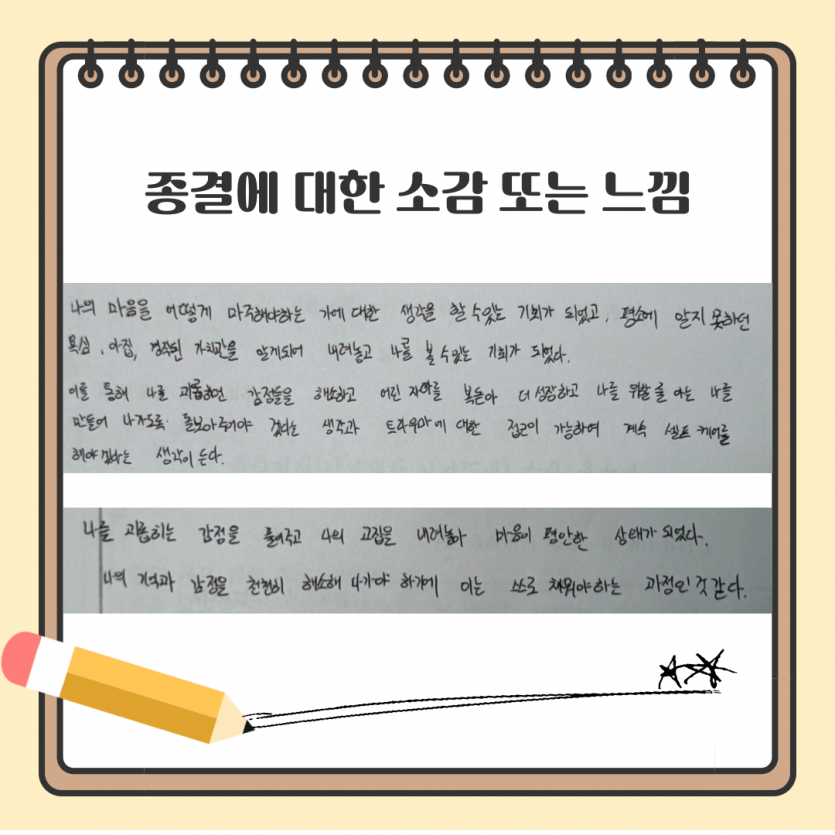 종결에 대한 소감 또는 느낌
나의 마음을 어떻게 마주해야하는 가에 대한 생각을 할 수있는 기회가 되었고, 평소에 알지 못하던
욕심, 아집, 경직된 가치관을 알게되어 내려놓고 나를 볼 수있는 기회가 되었다.
이를 통해 나를 괴롭히던 감정들을 해소하고 어린 자아를 북돋아 더 성장하고 나를 위할 줄 아는 나를
만들어 나가도록 돌보아주어야 겠다는 생각과 트라우마에 대한 접근이 가능하여 계속 셀프 케어를
해야겠다는 생각이 든다.
나를 괴롭히는 감정을 풀어주고 나의 고집을 내려놓아 마음이 평안한 상태가 되었다.
나의 기억과 감정을 천천히 해소해 나가야 하기에 이는 스스로 채워야하는 과정인 것 같다.